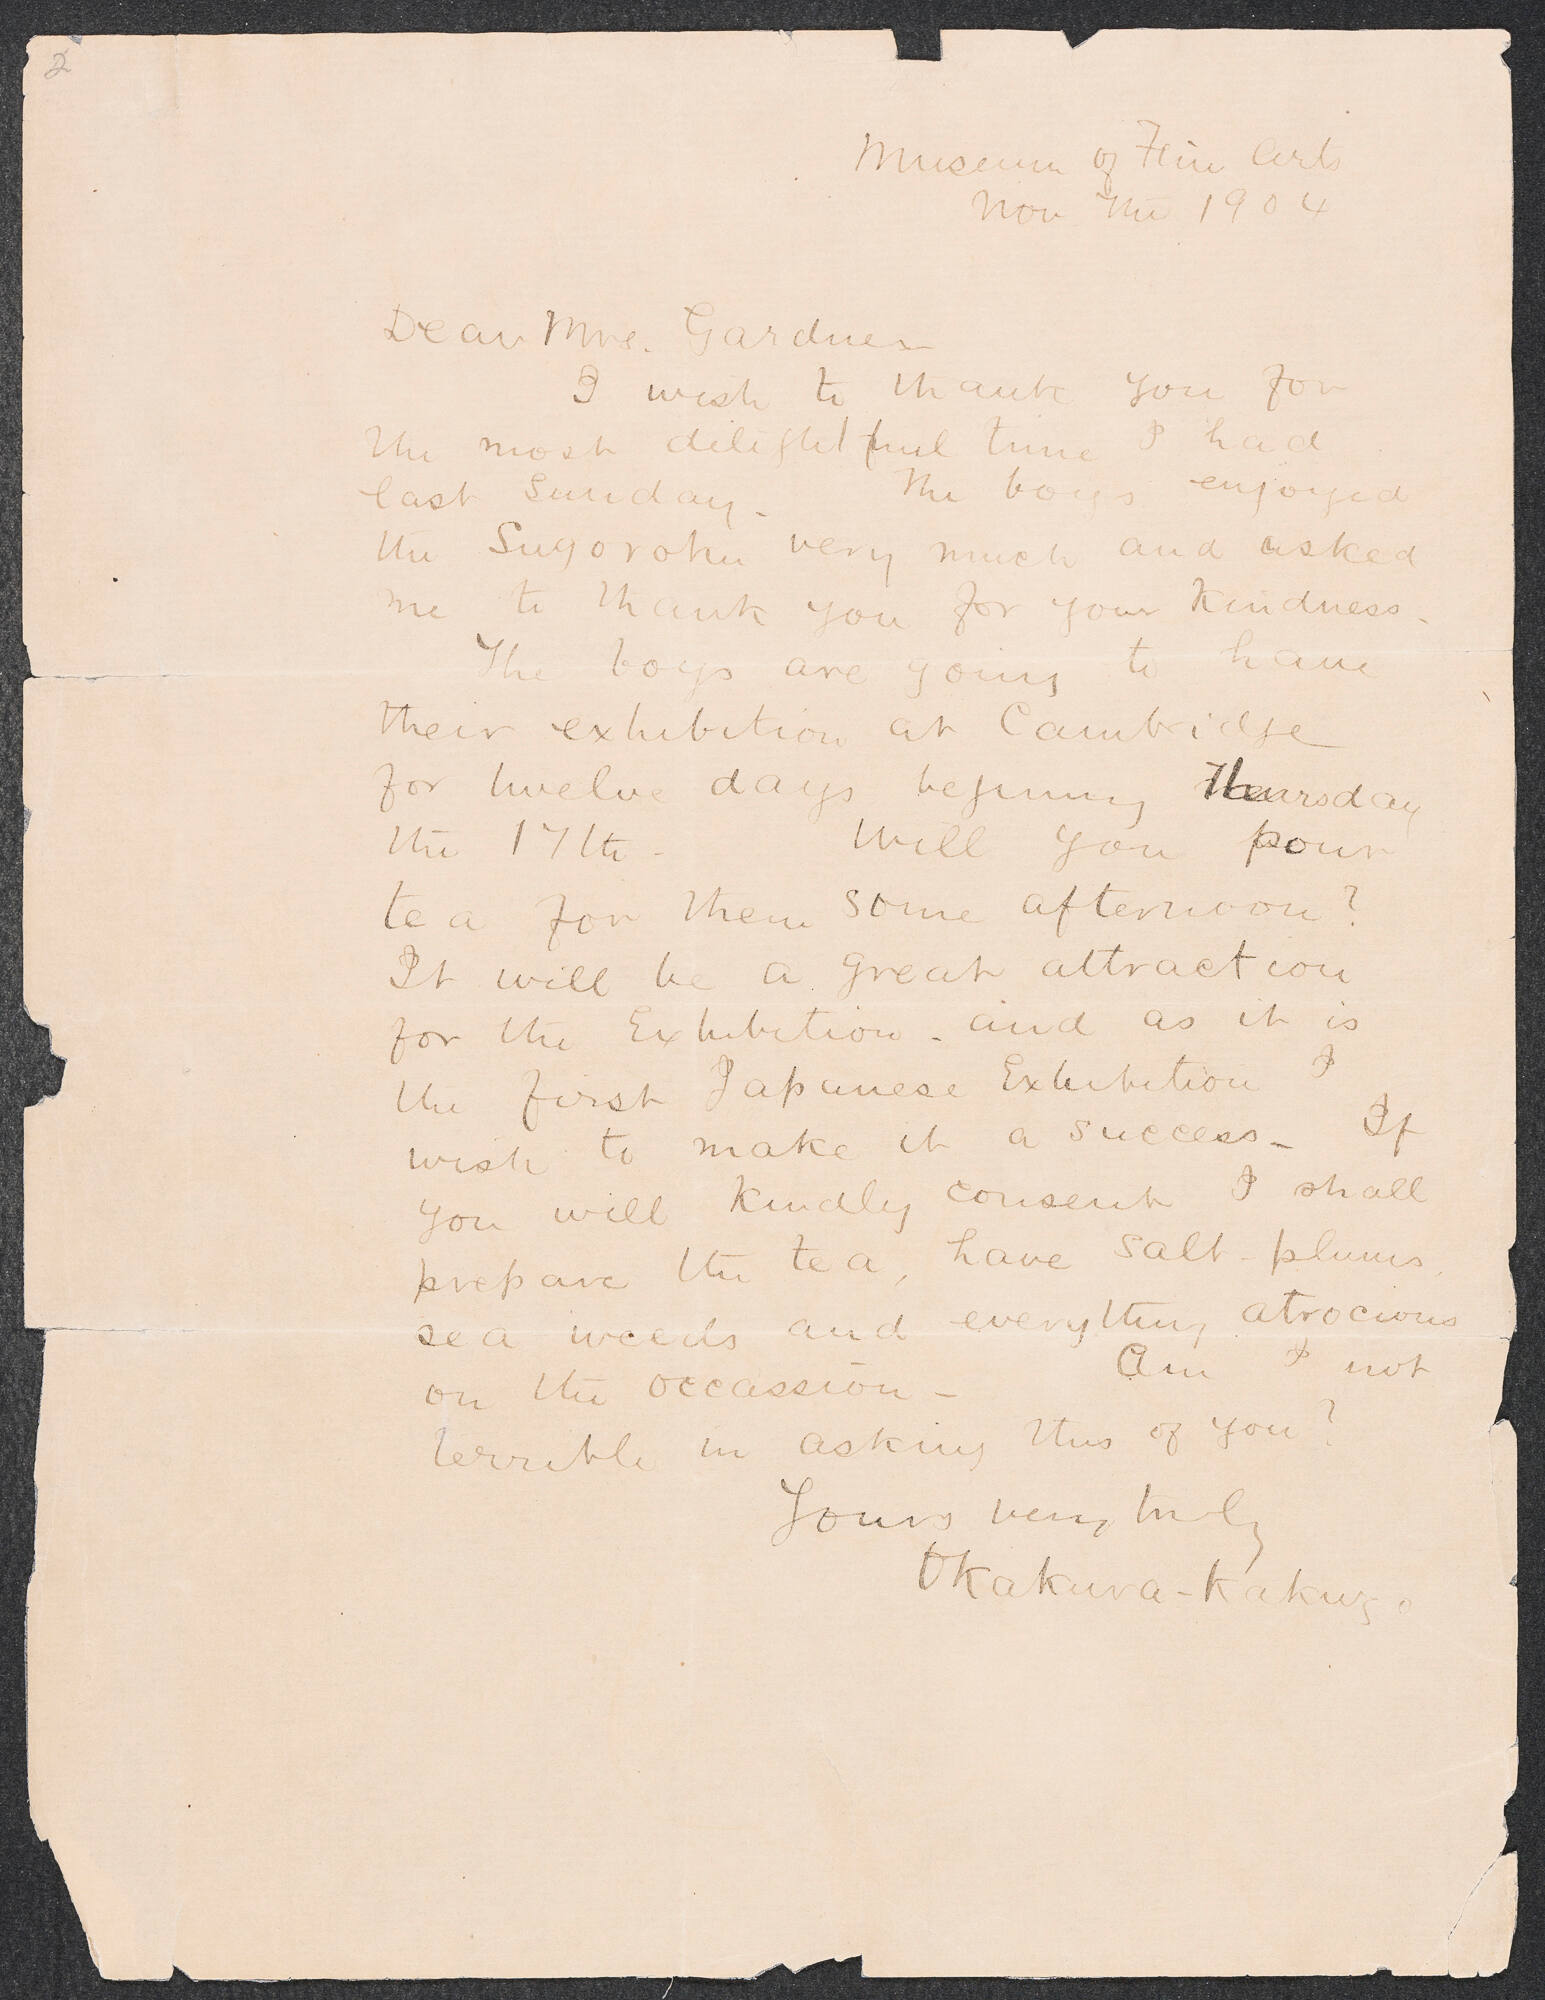 2
Museum of Fine Arts
Nov the 1904
Dear Mrs. Gardner
I wish to thank you for
the most delightful time I had
last Sunday. The boys enjoyed
the Sugoroku very much and asked
me to thank you for your kindness.
The boys are going to have
their exhibition at Cambridge
for twelve days beginning Thursday
the 17th. Will you pour
tea for them some afternoon?
It will be a great attraction
for the Exhibition - and as it is
the first Japanese Exhibition I
wish to make it a success - If
you will kindly consent I shall
prepare the tea, have salt-plums,
sea weeds and everything atrocious
on the occassion - Am I not
terrible in asking this of you?
Yours very truly
Okakura-Kakuzo